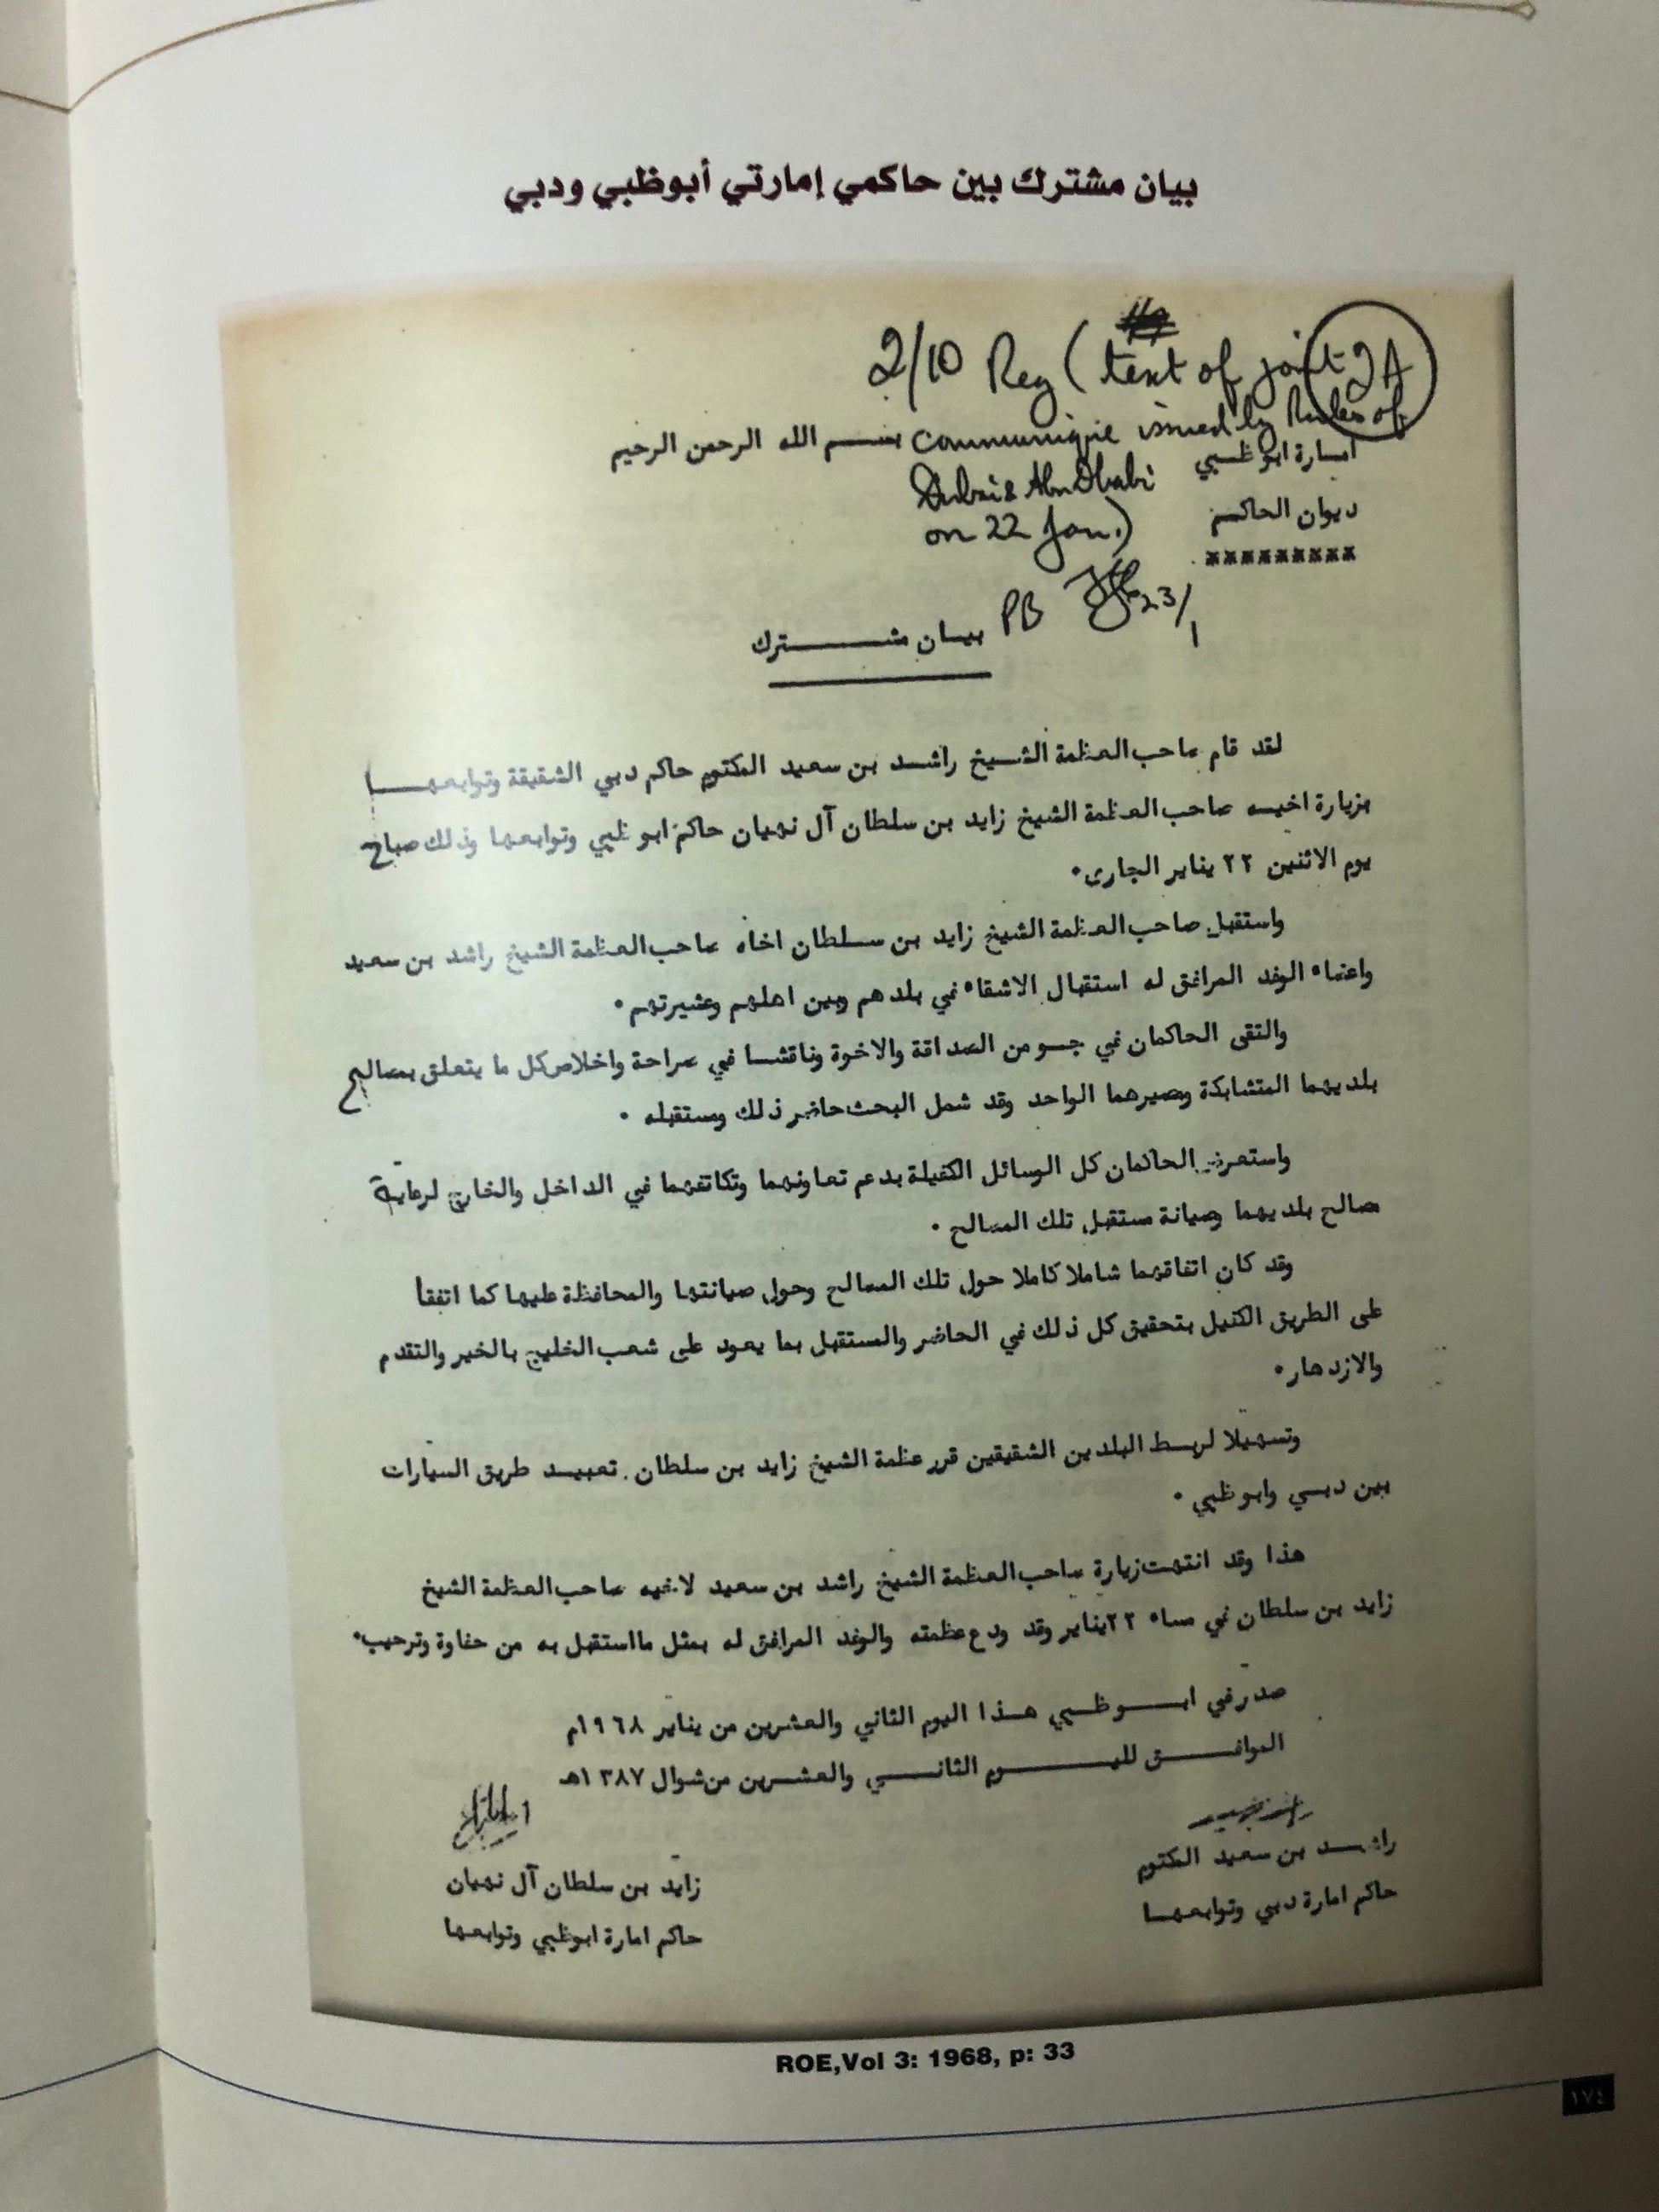 بيان مشترك بين حاكمي إمارتي أبوظبي ودبي
2/10 Reg (text of joint 2A
communiqué issued by Rulers of
Dubai & Abu Dhabi
on 22 Jan.)
PB 23/1
بسم الله الرحمن الرحيم
امارة ابوظبي
ديوان الحاكم
*********
بيان مشترك
لقد قام صاحب العظمة الشيخ راشد بن سعيد المكتوم حاكم دبي الشقيقة وتوابعها
بزيارة اخيه صاحب العظمة الشيخ زايد بن سلطان آل نهيان حاكم ابو ظبي وتوابعها وذلك صباح
يوم الاثنين ٢٢ يناير الجارى٠
واستقبل صاحب العظمة الشيخ زايد بن سلطان اخاه صاحب العظمة الشيخ راشد بن سعيد
واعضاء الوفد المرافق له استقبال الاشقاء في بلدهم وبين اهلهم وعشيرتهم٠
والتقى الحاكمان في جو من الصداقة والاخوة وناقشا في صراحة واخلاص كل ما يتعلق بمصالح
بلديهما المتشابكة ومصيرهما الواحد وقد شمل البحث حاضر ذلك ومستقبله ٠
واستعرض الحاكمان كل الوسائل الكفيلة بدعم تعاونهما وتكاتفهما في الداخل والخارج لرعاية
مصالح بلديهما وصيانة مستقبل تلك المصالح ٠
وقد كان اتفاقهما شاملا كاملا حول تلك المصالح وحول صيانتها والمحافظة عليها كما اتفقا
على الطريق الكفيل بتحقيق كل ذلك في الحاضر والمستقبل بما يعود على شعب الخليج بالخير والتقدم
والازدهار٠
وتسهيلا لربط البلدين الشقيقين قرر عظمة الشيخ زايد بن سلطان تعبيد طريق السيارات
بين دبي وابو ظبي ٠
هذا وقد انتهت زيارة صاحب العظمة الشيخ راشد بن سعيد لاخيه صاحب العظمة الشيخ
زايد بن سلطان في مساء ٢٢ يناير وقد ودع عظمته والوفد المرافق له بمثل ما استقبل به من حفاوة وترحيب٠
صدر في ابو ظبي هذا اليوم الثاني والعشرين من يناير ١٩٦٨م
الموافق لليوم الثاني والعشرين من شوال ١٣٨٧هـ
راشد بن سعيد المكتوم
حاكم امارة دبي وتوابعها
زايد بن سلطان آل نهيان
حاكم امارة ابوظبي وتوابعها
ROE,Vol 3: 1968, p: 33
١٧٤